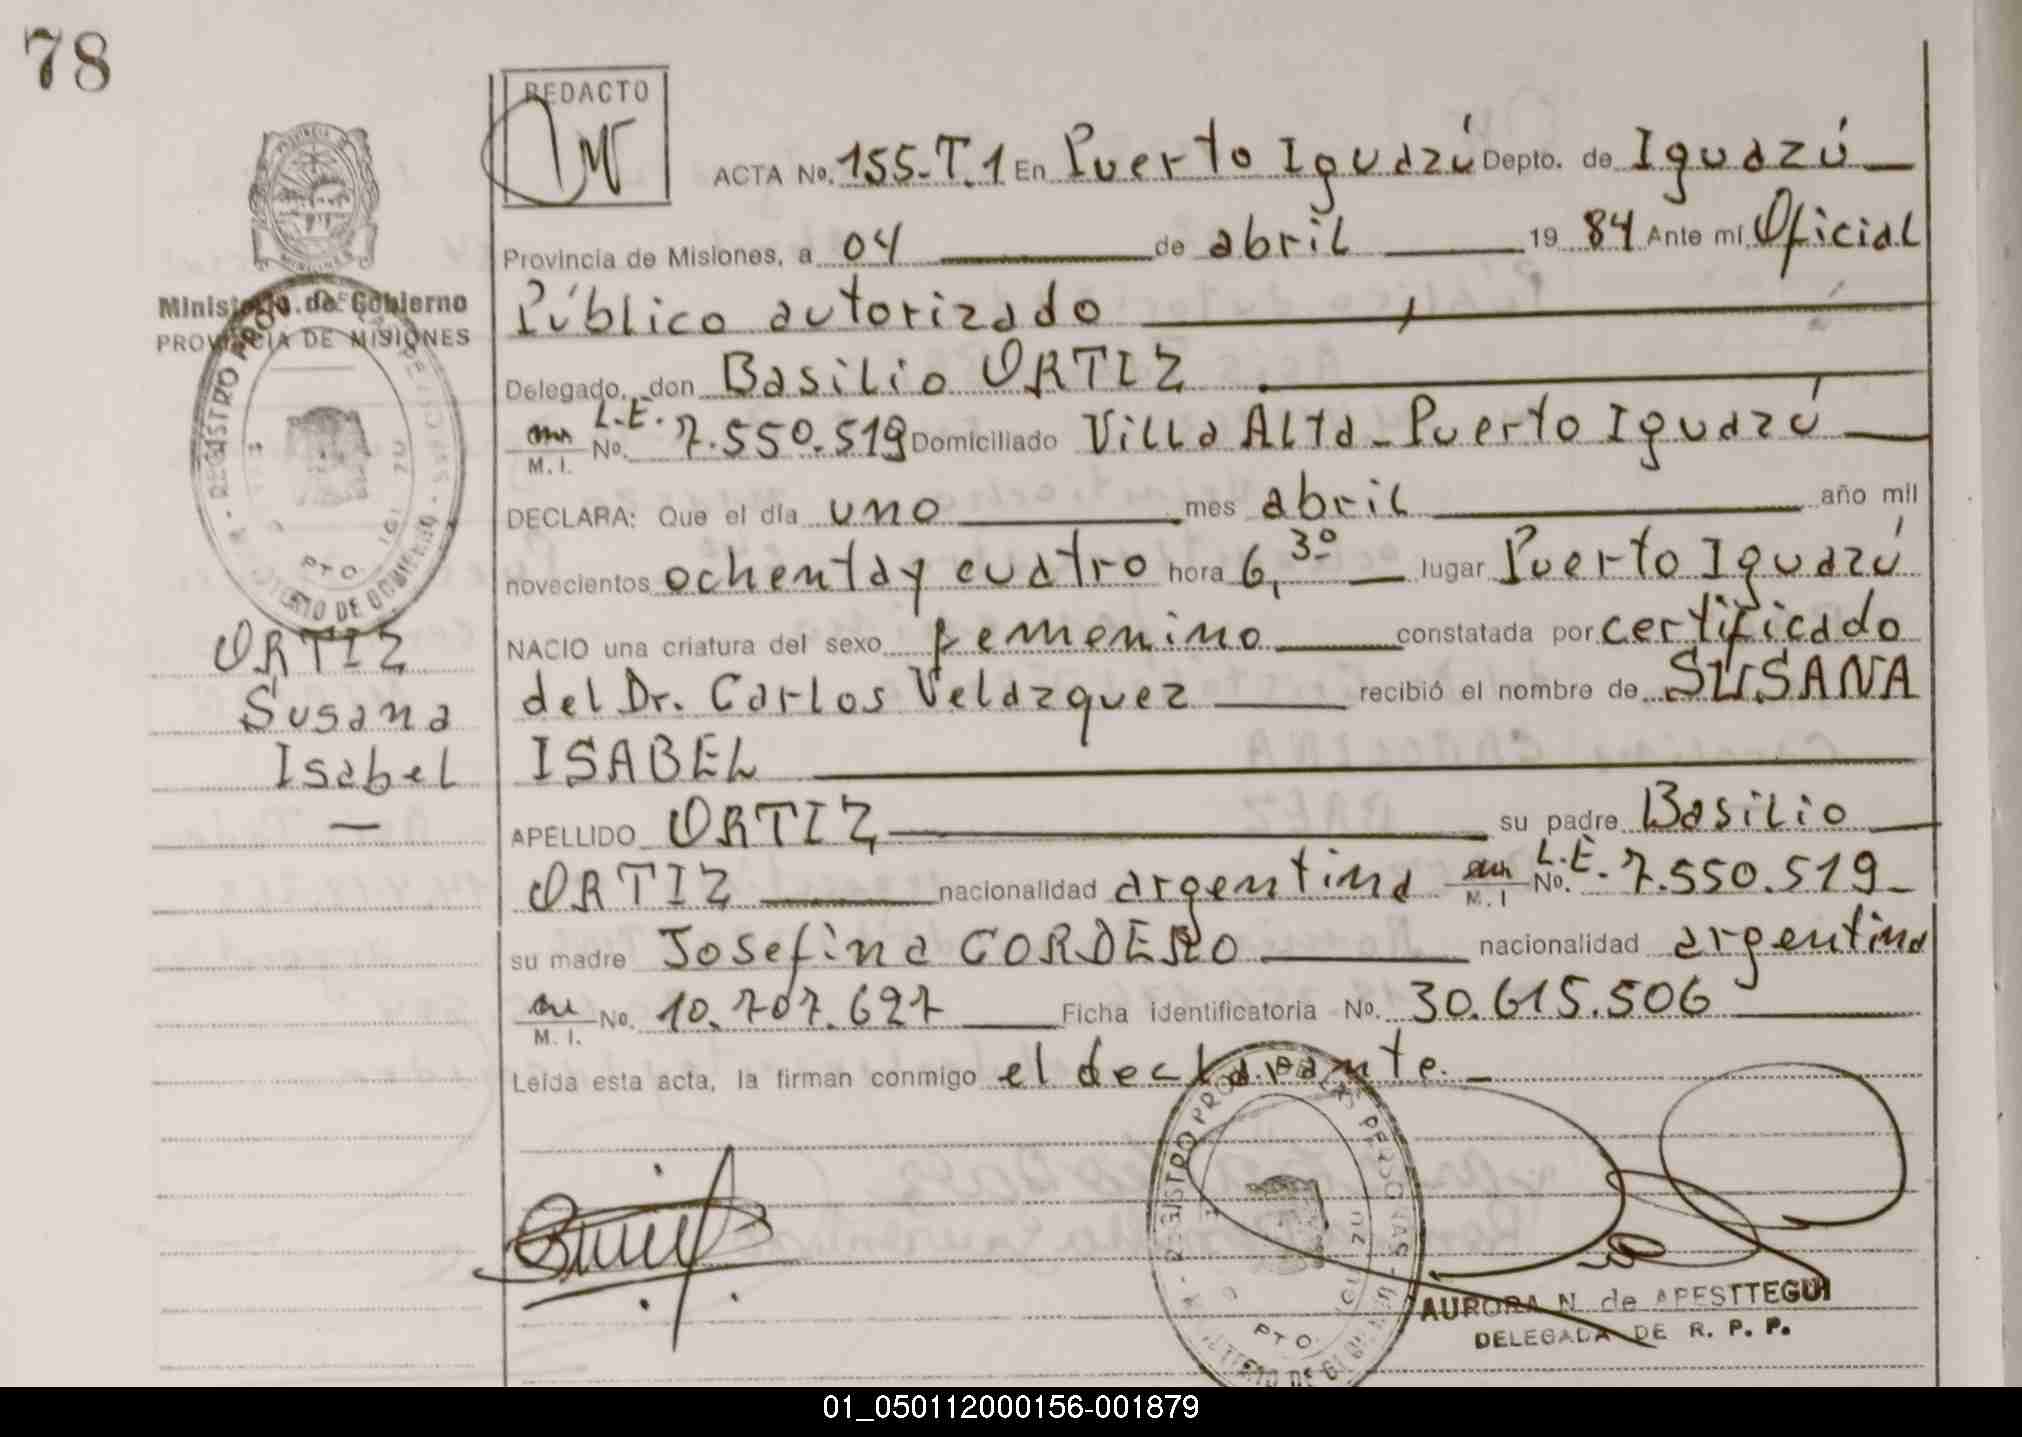 78
REDACTO
ACTA No. 155-T.1 En Puerto Iguazú Depto. de Iguazú
Provincia de Misiones, a 04 de abril 19 84 Ante mí Oficial
Público autorizado
Delegado, don Basilio ORTIZ
L.E.
M. I. No. 7.550.519 Domiciliado Villa Alta - Puerto Iguazú
DECLARA: Que el día uno mes abril año mil
novecientos ochenta y cuatro hora 6,30 lugar Puerto Iguazú
NACIO una criatura del sexo femenino constatada por certificado
del Dr. Carlos Velazquez recibió el nombre de SUSANA
ISABEL
APELLIDO ORTIZ su padre Basilio
ORTIZ nacionalidad argentina M. I No. L.E. 7.550.519
su madre Josefina CORDERO nacionalidad argentina
M. I. No. 10.707.627 Ficha identificatoria No. 30.615.506
Leída esta acta, la firman conmigo el declarante.
Ministerio de Gobierno
PROVINCIA DE MISIONES
ORTIZ
Susana
Isabel
PTO. IGUAZU
AURORA N. de APESTTEGUI
DELEGADA DE R. P. P.
01_050112000156-001879